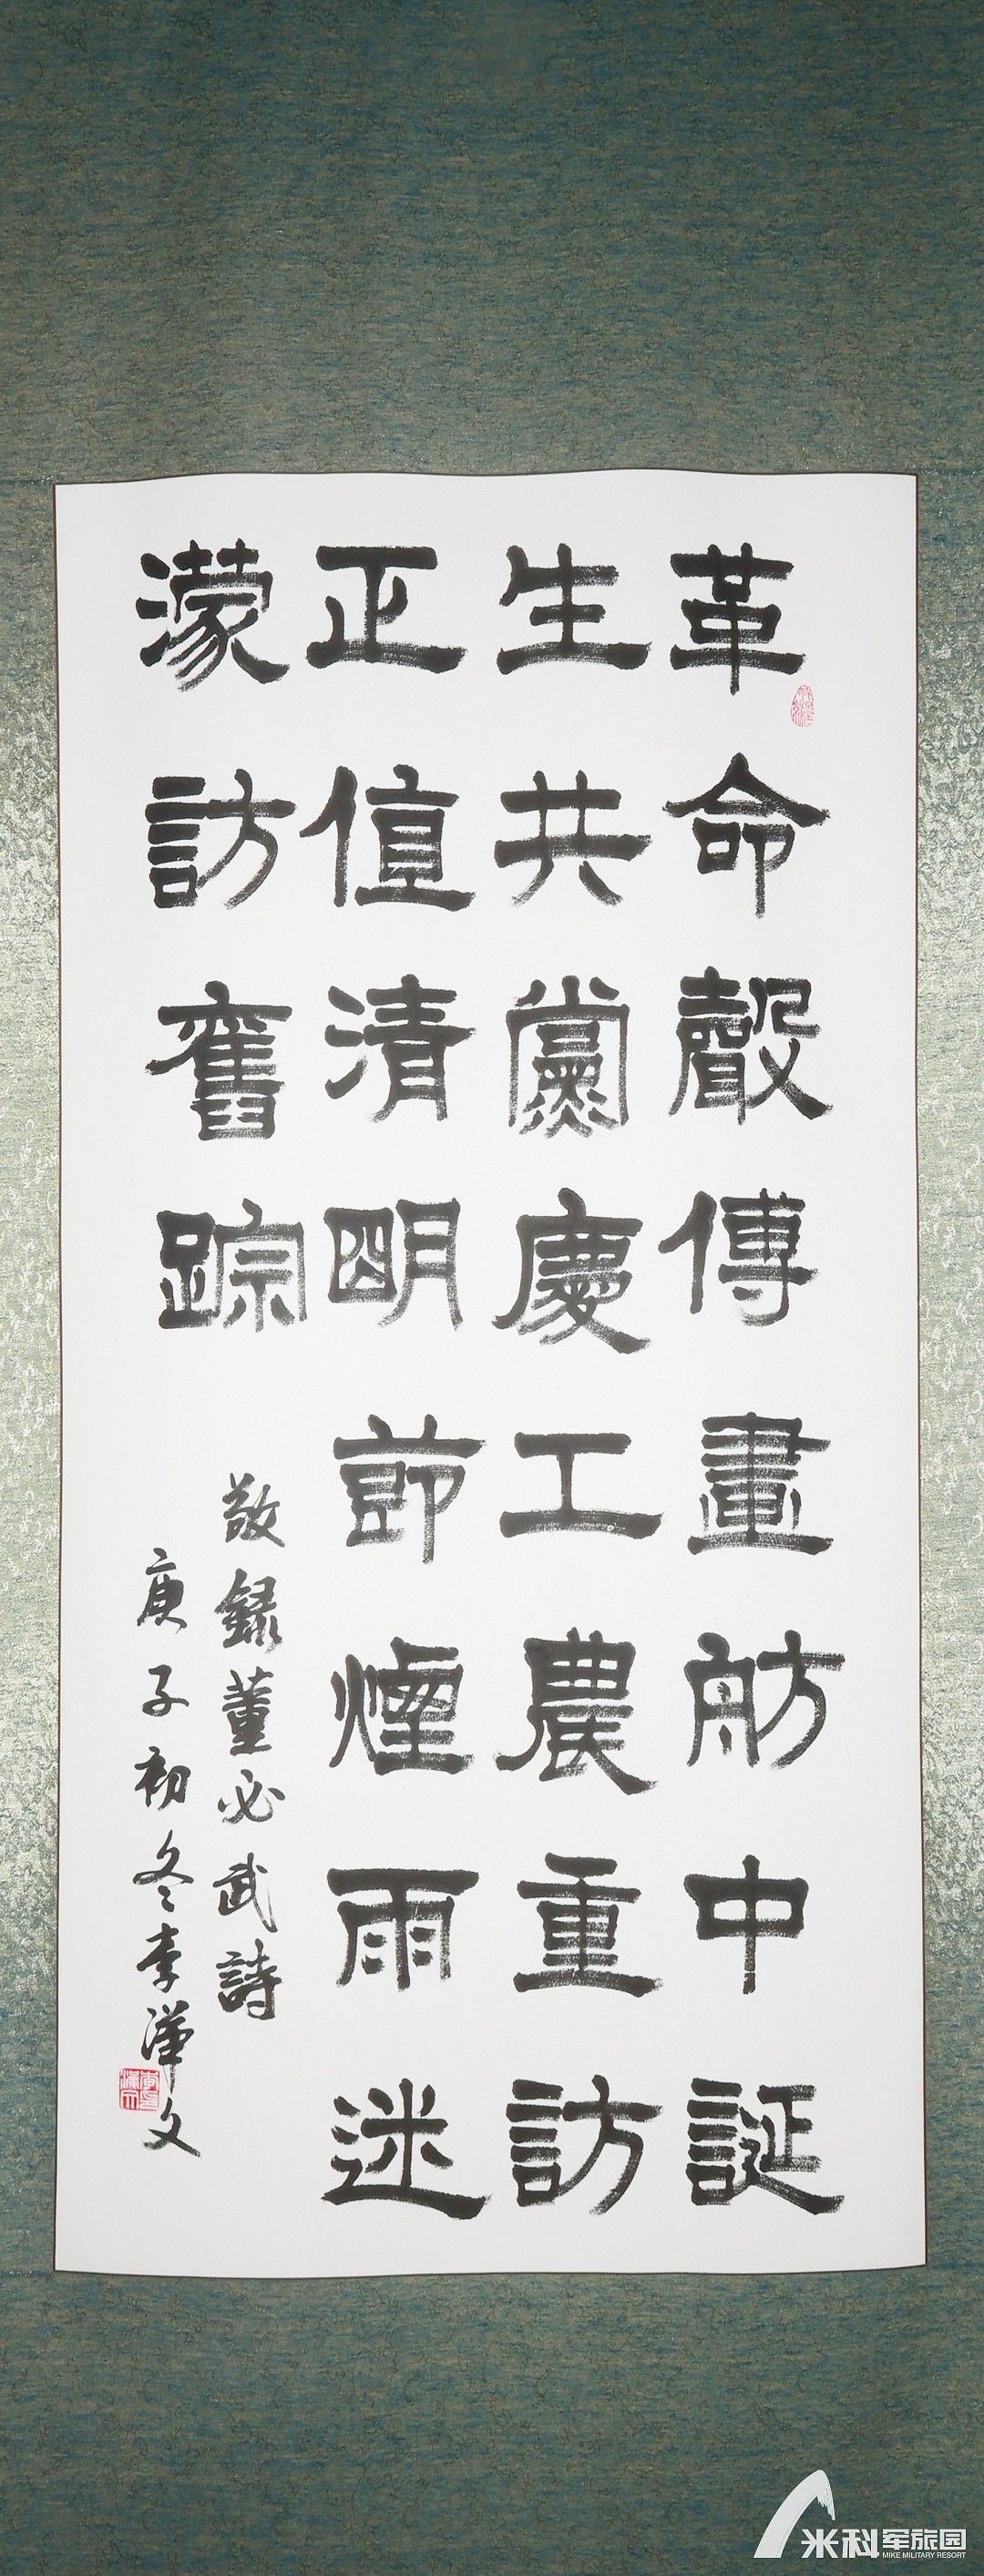 革命聲傳畫舫中誕
生共黨慶工農重訪
正值清明節煙雨迷
濛訪舊踪
敬録董必武詩
庚子初冬李漢文
米科军旅园
MIKE MILITARY RESORT